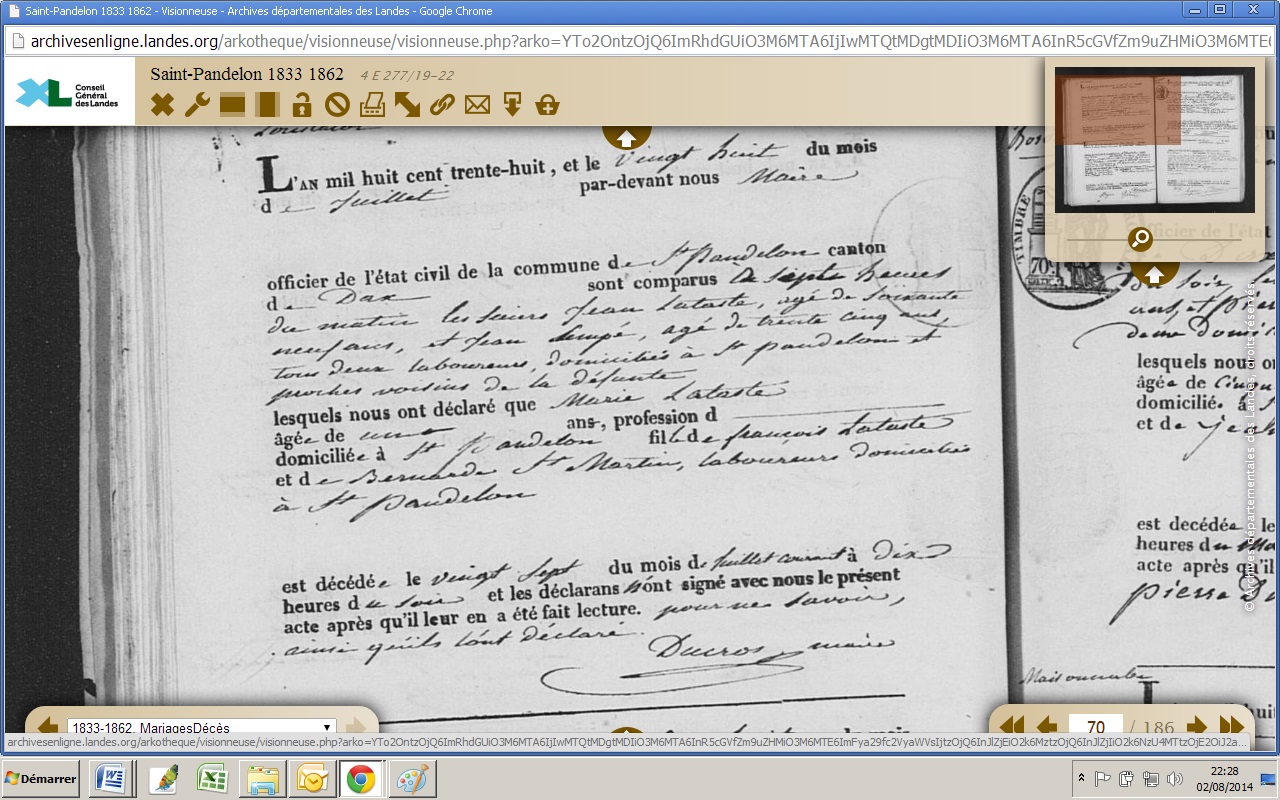 Saint-Pandelon 1833 1862 - Visionneuse - Archives départementales des Landes - Google Chrome
archivesenligne.landes.org/arkotheque/visionneuse/visionneuse.php?arko=YTo2OntzOjQ6ImRhdGUiO3M6MTA6IjIwMTQtMDgtMDIiO3M6MTA6InR5cGVfZm9uZHMiO3M6MTE6
Conseil
Général
des Landes
Saint-Pandelon 1833 1862 4 E 277/19-22
L'AN mil huit cent trente-huit, et le vingt huit du mois
de Juillet par-devant nous Maire
officier de l'état civil de la commune de St Pandelon canton
de Dax sont comparus à sept heures
du matin les sieurs Jean Lataste, agé de soixante
neuf ans, et Jean Lupé, agé de trente cinq ans,
tous deux laboureurs, domiciliés à St pandelon et
proches voisins de la défunte
lesquels nous ont déclaré que Marie Lataste
âgée de un ans, profession d
domiciliée à St Pandelon fille de françois Lataste
et de Bernarde St Martin, laboureurs domiciliés
à St Pandelon
est décédée le vingt sept du mois de Juillet courant à dix
heures du soir et les déclarans n'ont signé avec nous le présent
acte après qu'il leur en a été fait lecture. pour ne savoir,
ainsi qu'ils l'ont déclaré.
Ducros maire
TIMBRE
70
officier de l'état
du soir,
ans, et
deme domici
lesquels nous
âgée de
domicilié. à
et de
est decédée le
heures du
acte après qu'il
pierre
Maisonnabe
© Archives départementales des Landes, droits réservés.
1833-1862, MariagesDécès
70 / 186
archivesenligne.landes.org/arkotheque/visionneuse/visionneuse.php?arko=YTo2OntzOjQ6ImRhdGUiO3M6MTA6IjIwMTQtMDgtMDIiO3M6MTA6InR5cGVfZm9uZHMiO3M6MTE6ImFya29fc2VyaWVsIjtzOjQ6InJlZjEiO2k6MztzOjQ6InJlZjIiO2k6NzU4MTtzOjE2OiJ2a...
Démarrer
22:28
02/08/2014